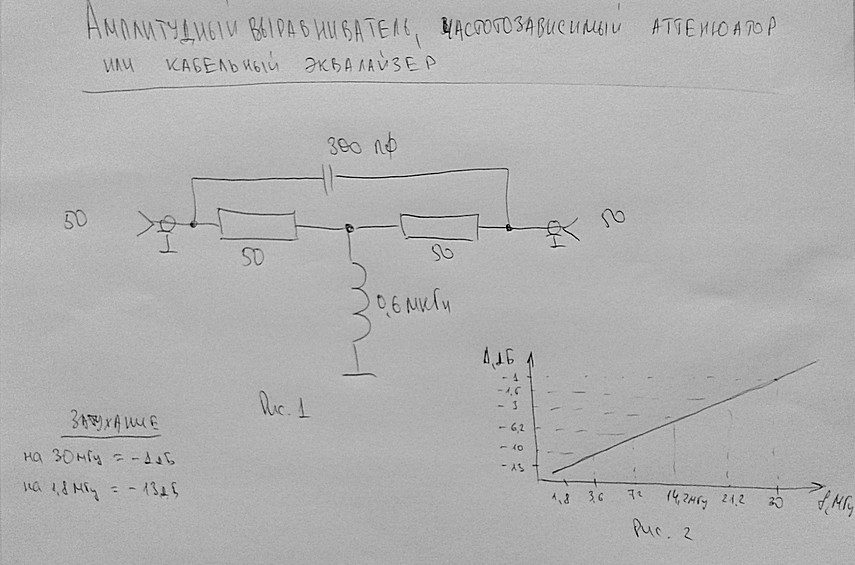 АМПЛИТУДНЫЙ ВЫРАВНИВАТЕЛЬ, ЧАСТОТОЗАВИСИМЫЙ АТТЕНЮАТОР
ИЛИ КАБЕЛЬНЫЙ ЭКВАЛАЙЗЕР
300 пФ
50
50
50
50
0,6 мкГн
Рис. 1
ЗАТУХАНИЕ
на 30 мгц = -1дБ
на 1,8 мгц = -13дБ
А, дБ
-1
-1,5
-3
-6,2
-10
-13
1,8 3,6 7,2 14,2мгц 21,2 30 f, МГц
Рис. 2